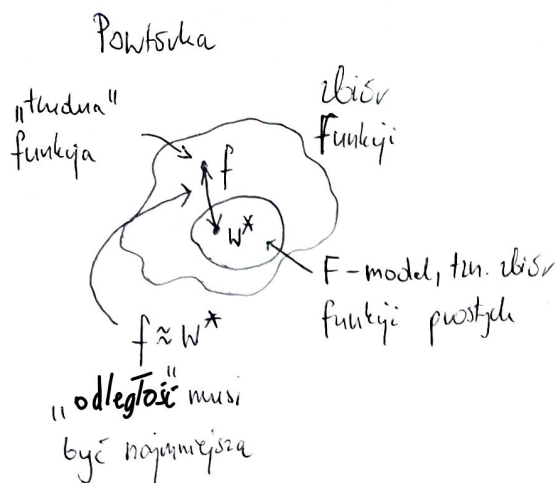 Powtórka
„trudna"
funkcja
zbiór
Funkcji
f
w*
F-model, tzn. zbiór
funkcji prostych
f ≈ w*
„odległość" musi
być najmniejsza